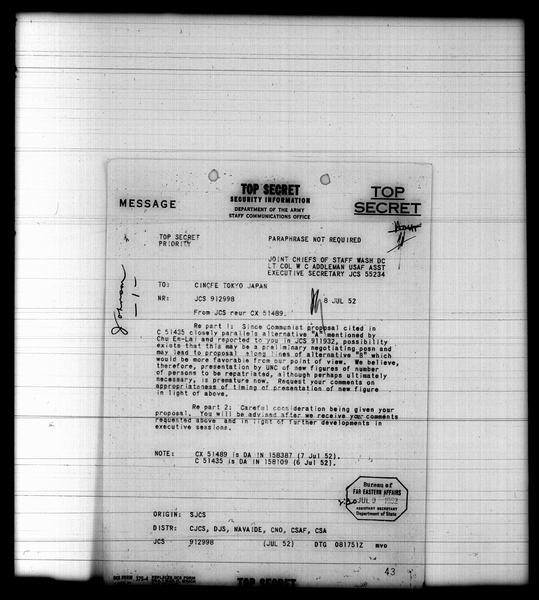 TOP SECRET
SECURITY INFORMATION
DEPARTMENT OF THE ARMY
STAFF COMMUNICATIONS OFFICE
MESSAGE
TOP
SECRET
TOP SECRET
PRIORITY
PARAPHRASE NOT REQUIRED
JOINT CHIEFS OF STAFF WASH DC
LT COL W C ADDLEMAN USAF ASST
EXECUTIVE SECRETARY JCS 55234
Johnson
-1-
TO: CINCFE TOKYO JAPAN
NR: JCS 912998
8 JUL 52
From JCS reur CX 51489.
Re part 1: Since Communist proposal cited in
C 51435 closely parallels alternative "A" mentioned by
Chu En-Lai and reported to you in JCS 911932, possibility
exists that this may be a preliminary negotiating posn and
may lead to proposal along lines of alternative "B" which
would be more favorable from our point of view. We believe,
therefore, presentation by UNC of new figures of number
of persons to be repatriated, although perhaps ultimately
necessary, is premature now. Request your comments on
appropriateness of timing of presentation of new figure
in light of above.
Re part 2: Careful consideration being given your
proposal. You will be advised after we receive your comments
requested above and in light of further developments in
executive sessions.
NOTE: CX 51489 is DA IN 158387 (7 Jul 52).
C 51435 is DA IN 158109 (6 Jul 52).
Bureau of
FAR EASTERN AFFAIRS
JUL 9 1952
ASSISTANT SECRETARY
Department of State
ORIGIN: SJCS
DISTR: CJCS, DJS, NAVAIDE, CNO, CSAF, CSA
JCS 912998 (JUL 52) DTG 081751Z mvo
43
TOP SECRET